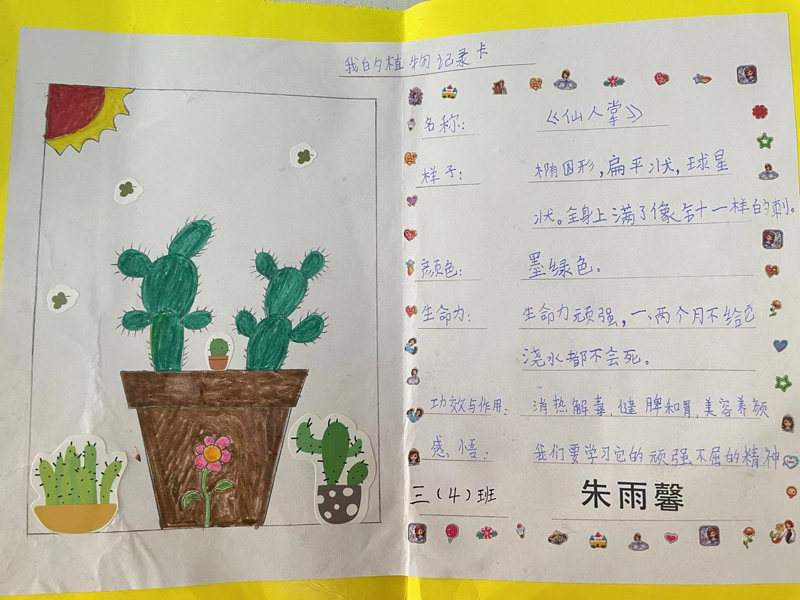 我的植物记录卡
名称: 《仙人掌》
样子: 椭圆形,扁平状,球星
状。全身上满了像针一样的刺。
颜色: 墨绿色。
生命力: 生命力顽强,一、两个月不给它
浇水都不会死。
功效与作用: 消热解毒,健脾和胃,美容养颜
感悟: 我们要学习它的顽强不屈的精神。
三(4)班 朱雨馨